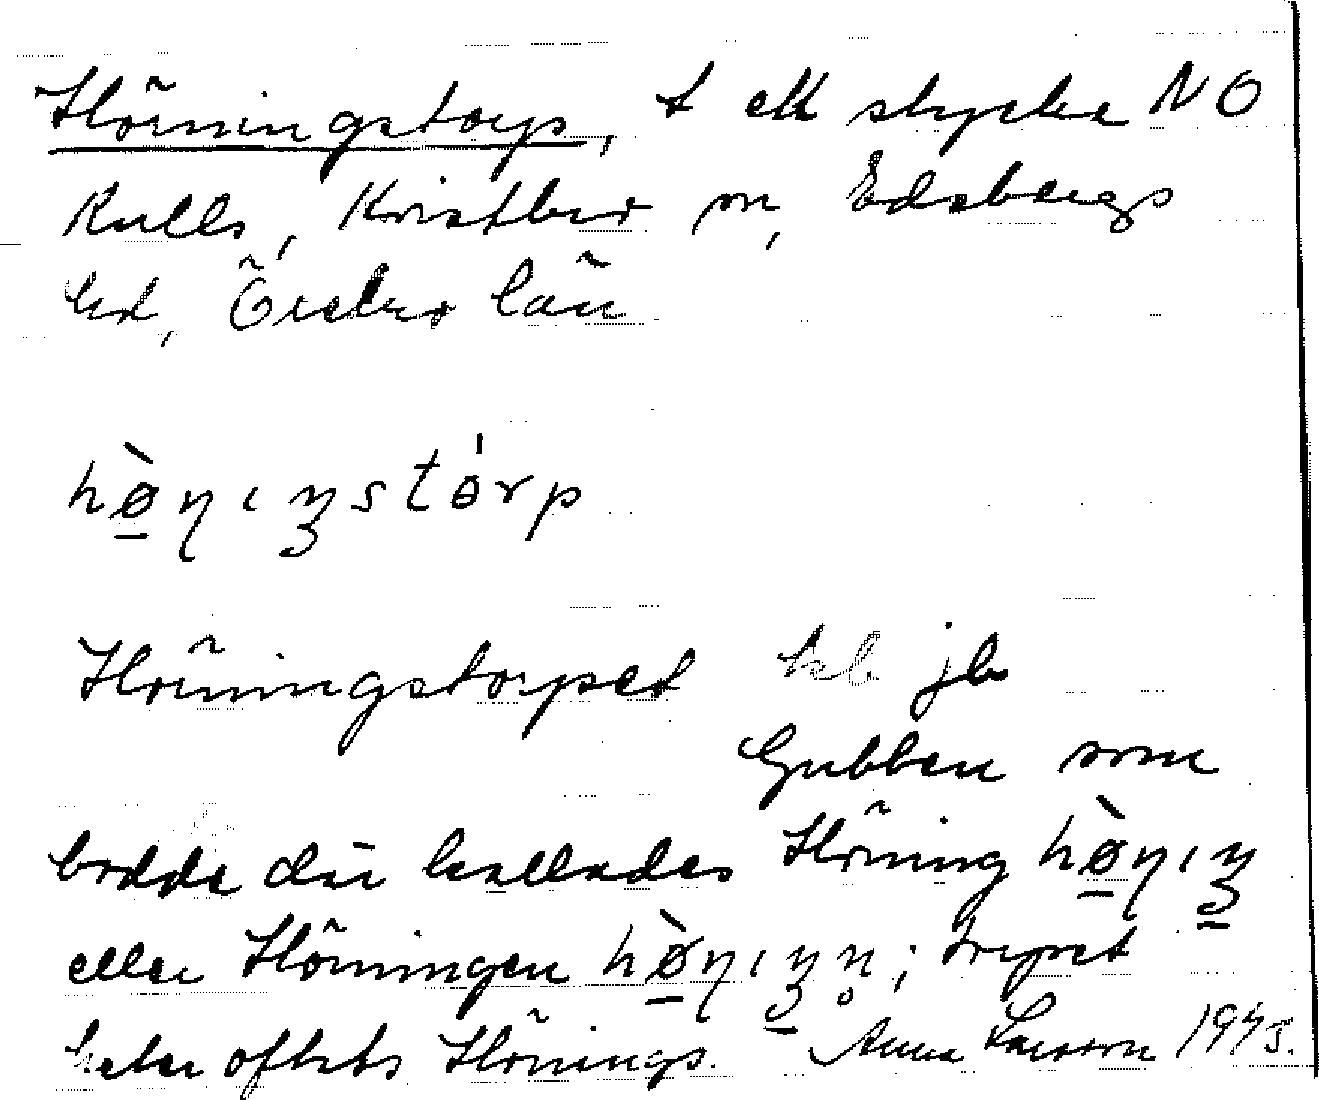 Hörningstorp, t ett stycke NO
Kulls, Kvistbro sn, Edsbergs
hd, Örebro län
hø̀ɳıŋstórp
Hörningstorpet hbl jb
Gubben som
bodde där kallades Hörning hø̀ɳıŋ
eller Hörningen hø̀ɳıŋn̥; torpet
heter oftast Hörnings. Anna Larsson 1945.